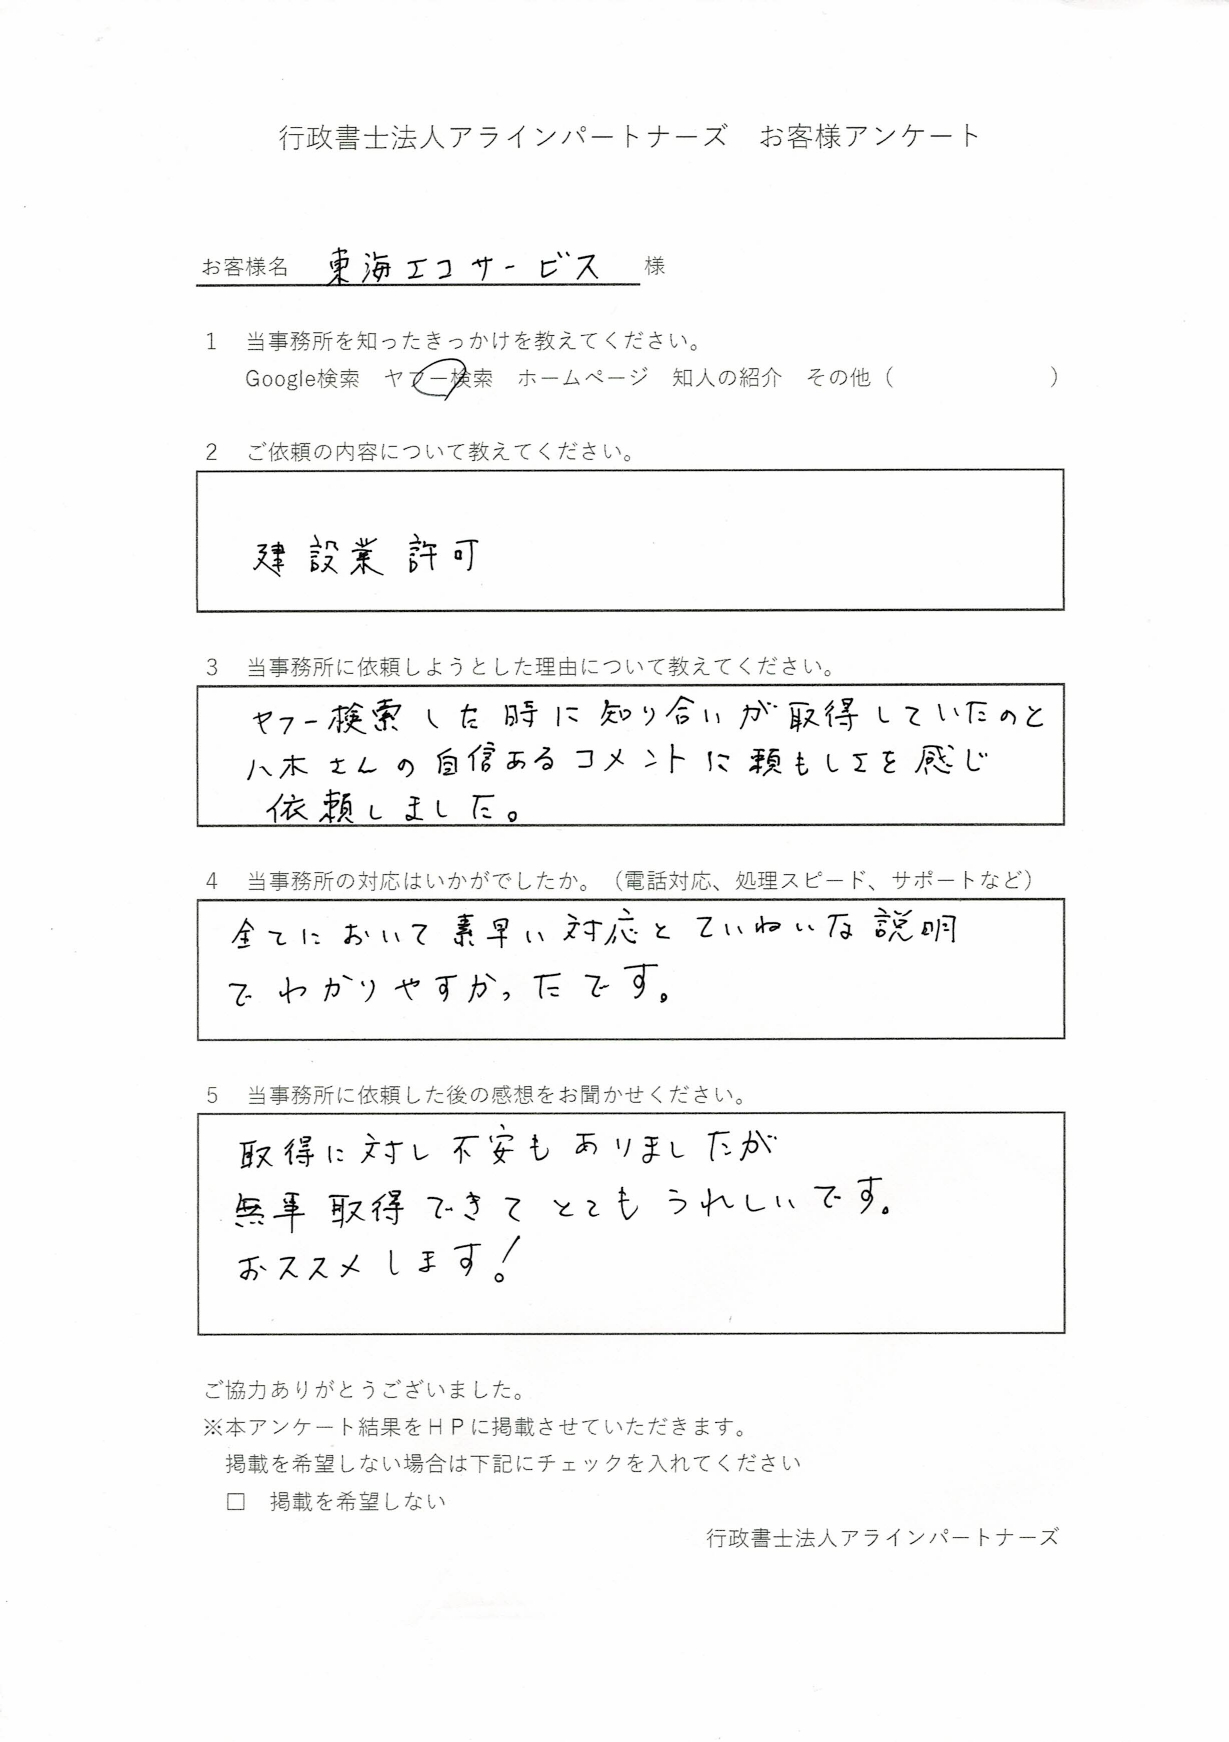 行政書士法人アラインパートナーズ　お客様アンケート
お客様名　東海エコサービス　様
1　当事務所を知ったきっかけを教えてください。
Google検索　ヤフー検索　ホームページ　知人の紹介　その他（　　　　　　　）
2　ご依頼の内容について教えてください。
建設業許可
3　当事務所に依頼しようとした理由について教えてください。
ヤフー検索した時に知り合いが取得していたのと
八木さんの自信あるコメントに頼もしさを感じ
依頼しました。
4　当事務所の対応はいかがでしたか。（電話対応、処理スピード、サポートなど）
全てにおいて素早い対応とていねいな説明
でわかりやすかったです。
5　当事務所に依頼した後の感想をお聞かせください。
取得に対し不安もありましたが
無事取得できてとてもうれしいです。
おススメします！
ご協力ありがとうございました。
※本アンケート結果をＨＰに掲載させていただきます。
掲載を希望しない場合は下記にチェックを入れてください
□　掲載を希望しない
行政書士法人アラインパートナーズ